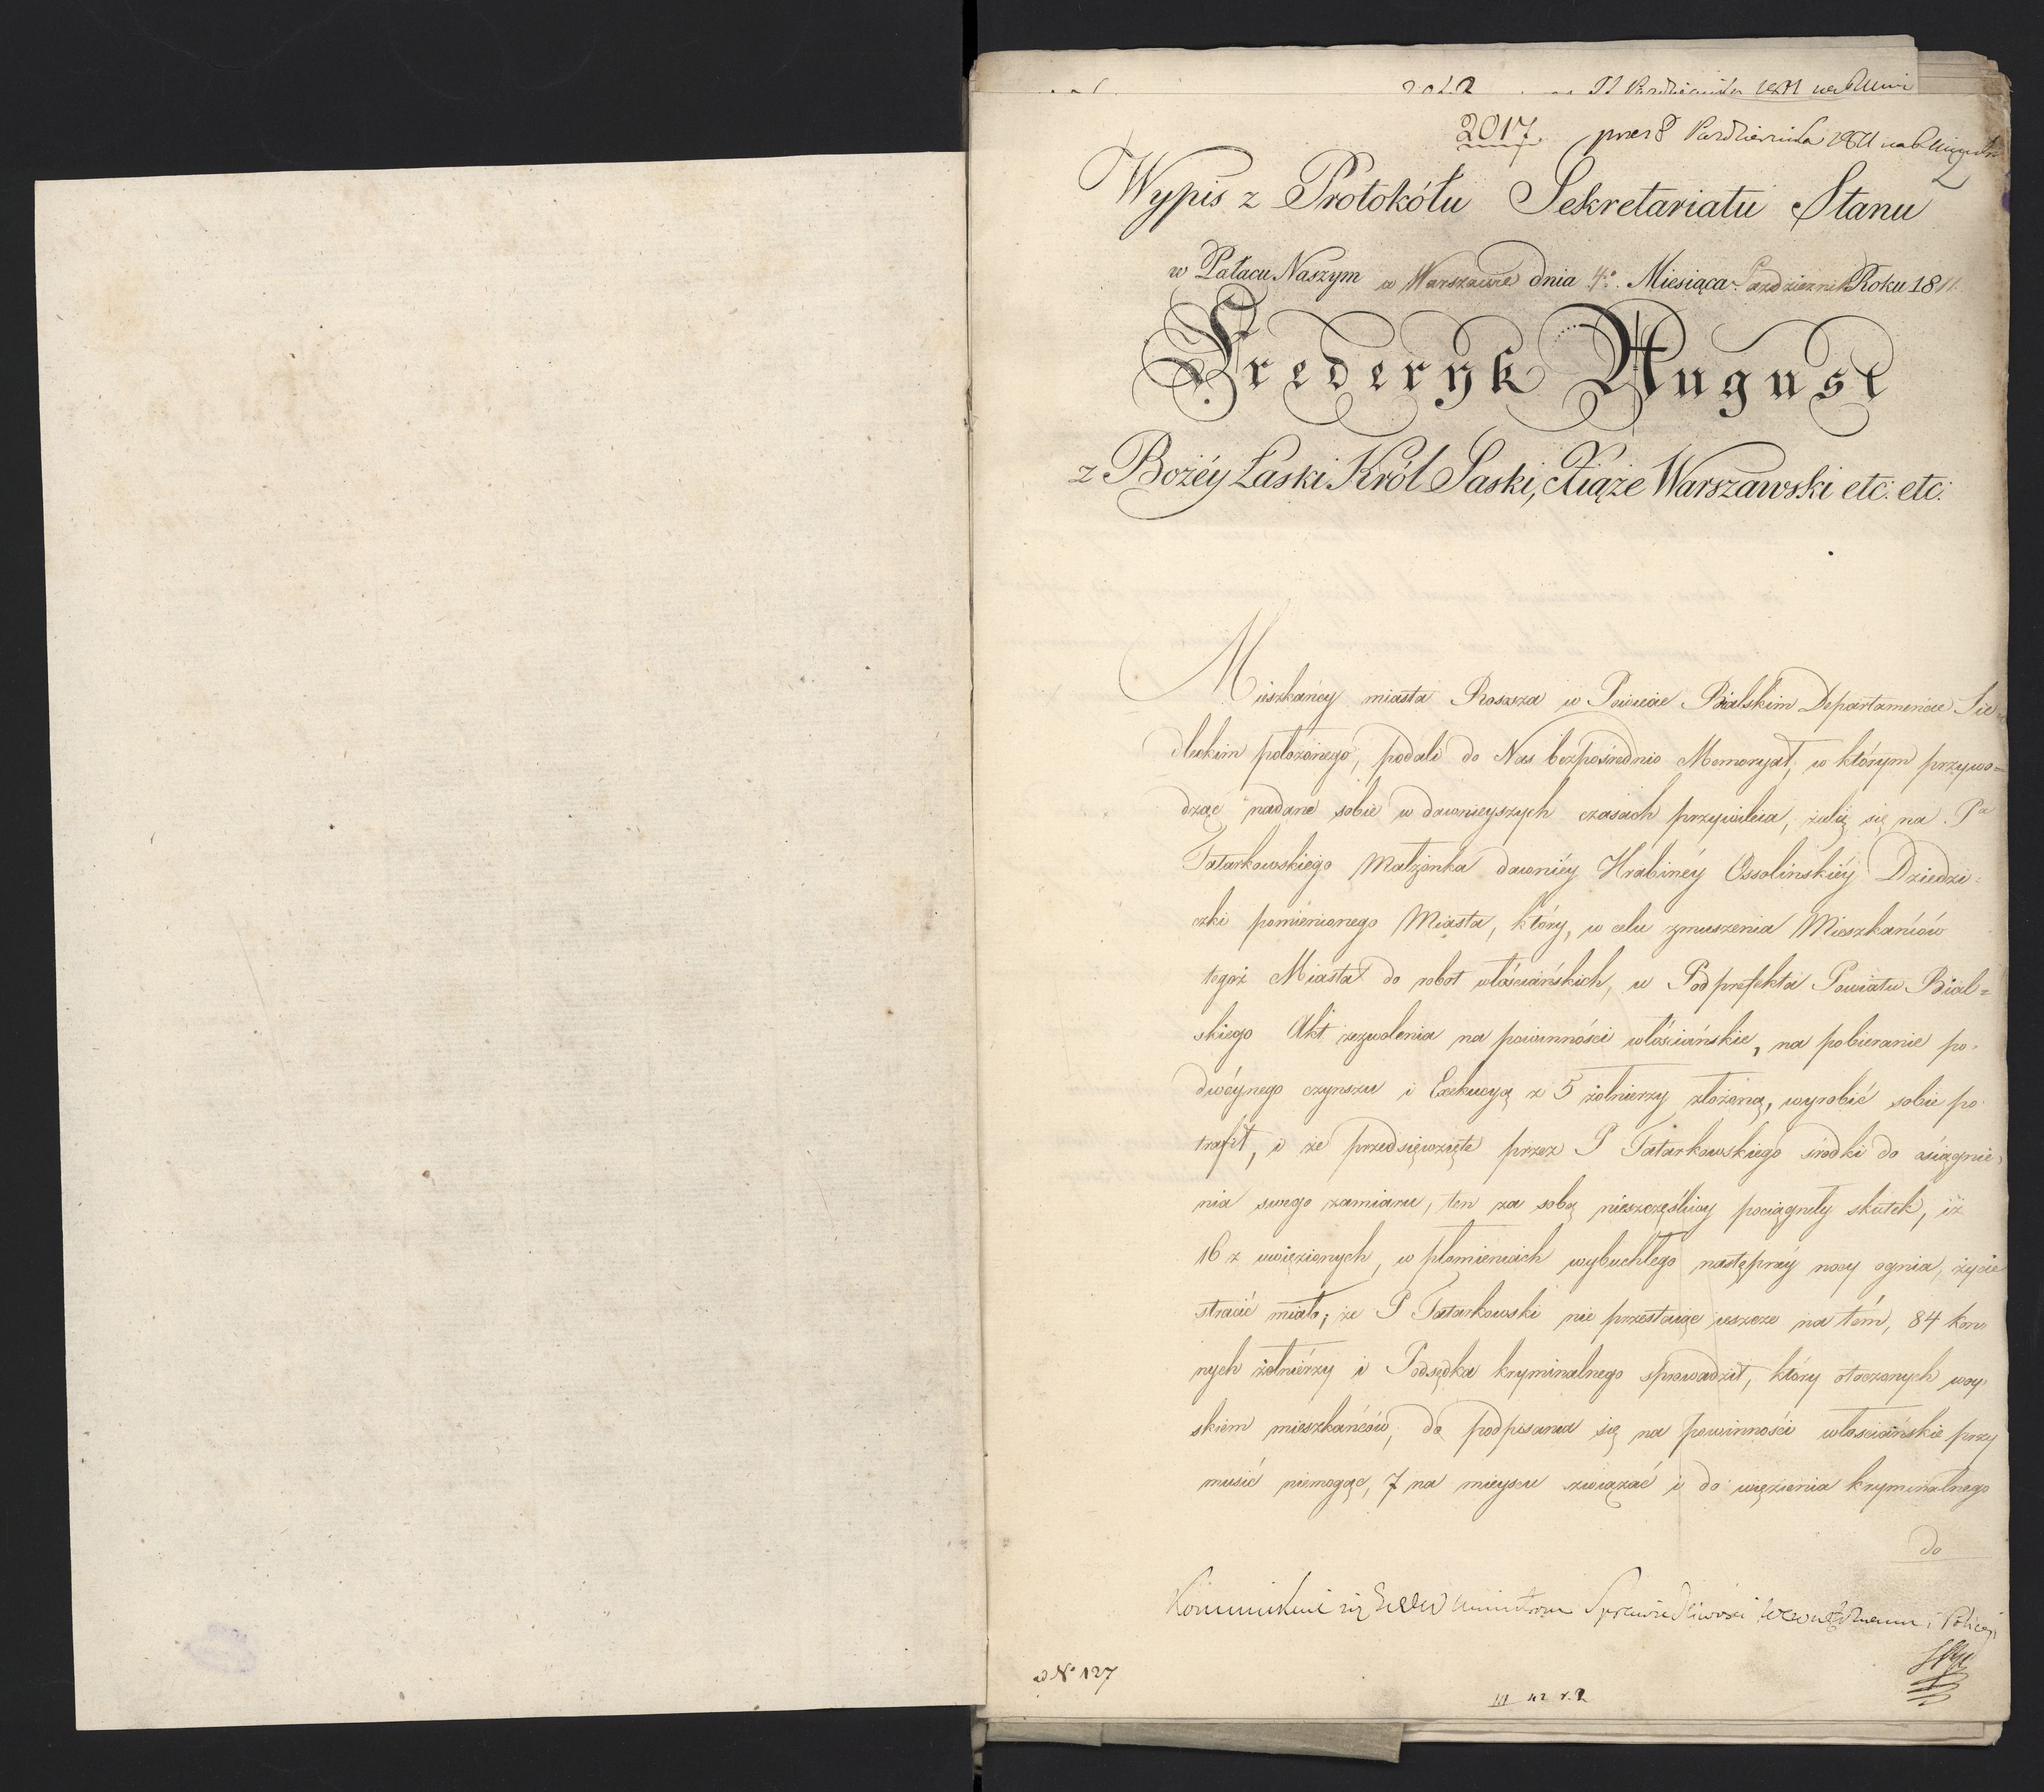 2017. prez 8 Pazdziernika 1811
Wypis z Protokółu Sekretariatu Stanu
w Pałacu Naszym w Warszawie dnia 4º. Miesiąca Pazdziernik Roku 1811.
Frederyk August
z Bożéy Łaski Król Saski, Xiąże Warszawski etc: etc:
Mieszkańcy miasta Rossosza w Powiecie Bialskim Departamencie Sie=
dleckim położonego, podali do Nas bezpośrednio Memoryał, w którym przywo=
dząc nadane sobie w dawnieyszych czasach przywileia, żalą się na Pa
Tatarkowskiego Małżonka dawniéy Hrabinéy Ossolińskiéy Dziedzi=
czki pomienionego Miasta, który, w celu zmuszenia Mieszkańców
tegoż Miasta do robot włościańskich, u Podprefekta Powiatu Bial=
skiego Akt zezwolenia na powinności włościańskie, na pobieranie po=
dwóynego czynszu i Exekucyą z 5 żołnierzy złożoną, wyrobić sobie po=
trafił, i że przedsięwzięte przez P Tatarkowskiego środki do osiągnie=
nia swego zamiaru, ten za sobą nieszczęśliwy pociągnęły skutek, iż
16 z uwięzionych, w płomieniach wybuchłego następnéy nocy ognia, życie
stracić miało; że P Tatarkowski nie przestaiąc ieszcze na tém, 84 kon=
nych żołniérzy i Podsędka kryminalnego sprowadził, który otoczonych woy=
skiem mieszkańców, do podpisania się na powinności włościańskie przy
musić niemogąc, 7 na mieyscu związać i do więzienia kryminalnego
do
Sprawiedliwości i Policyi
N° 127